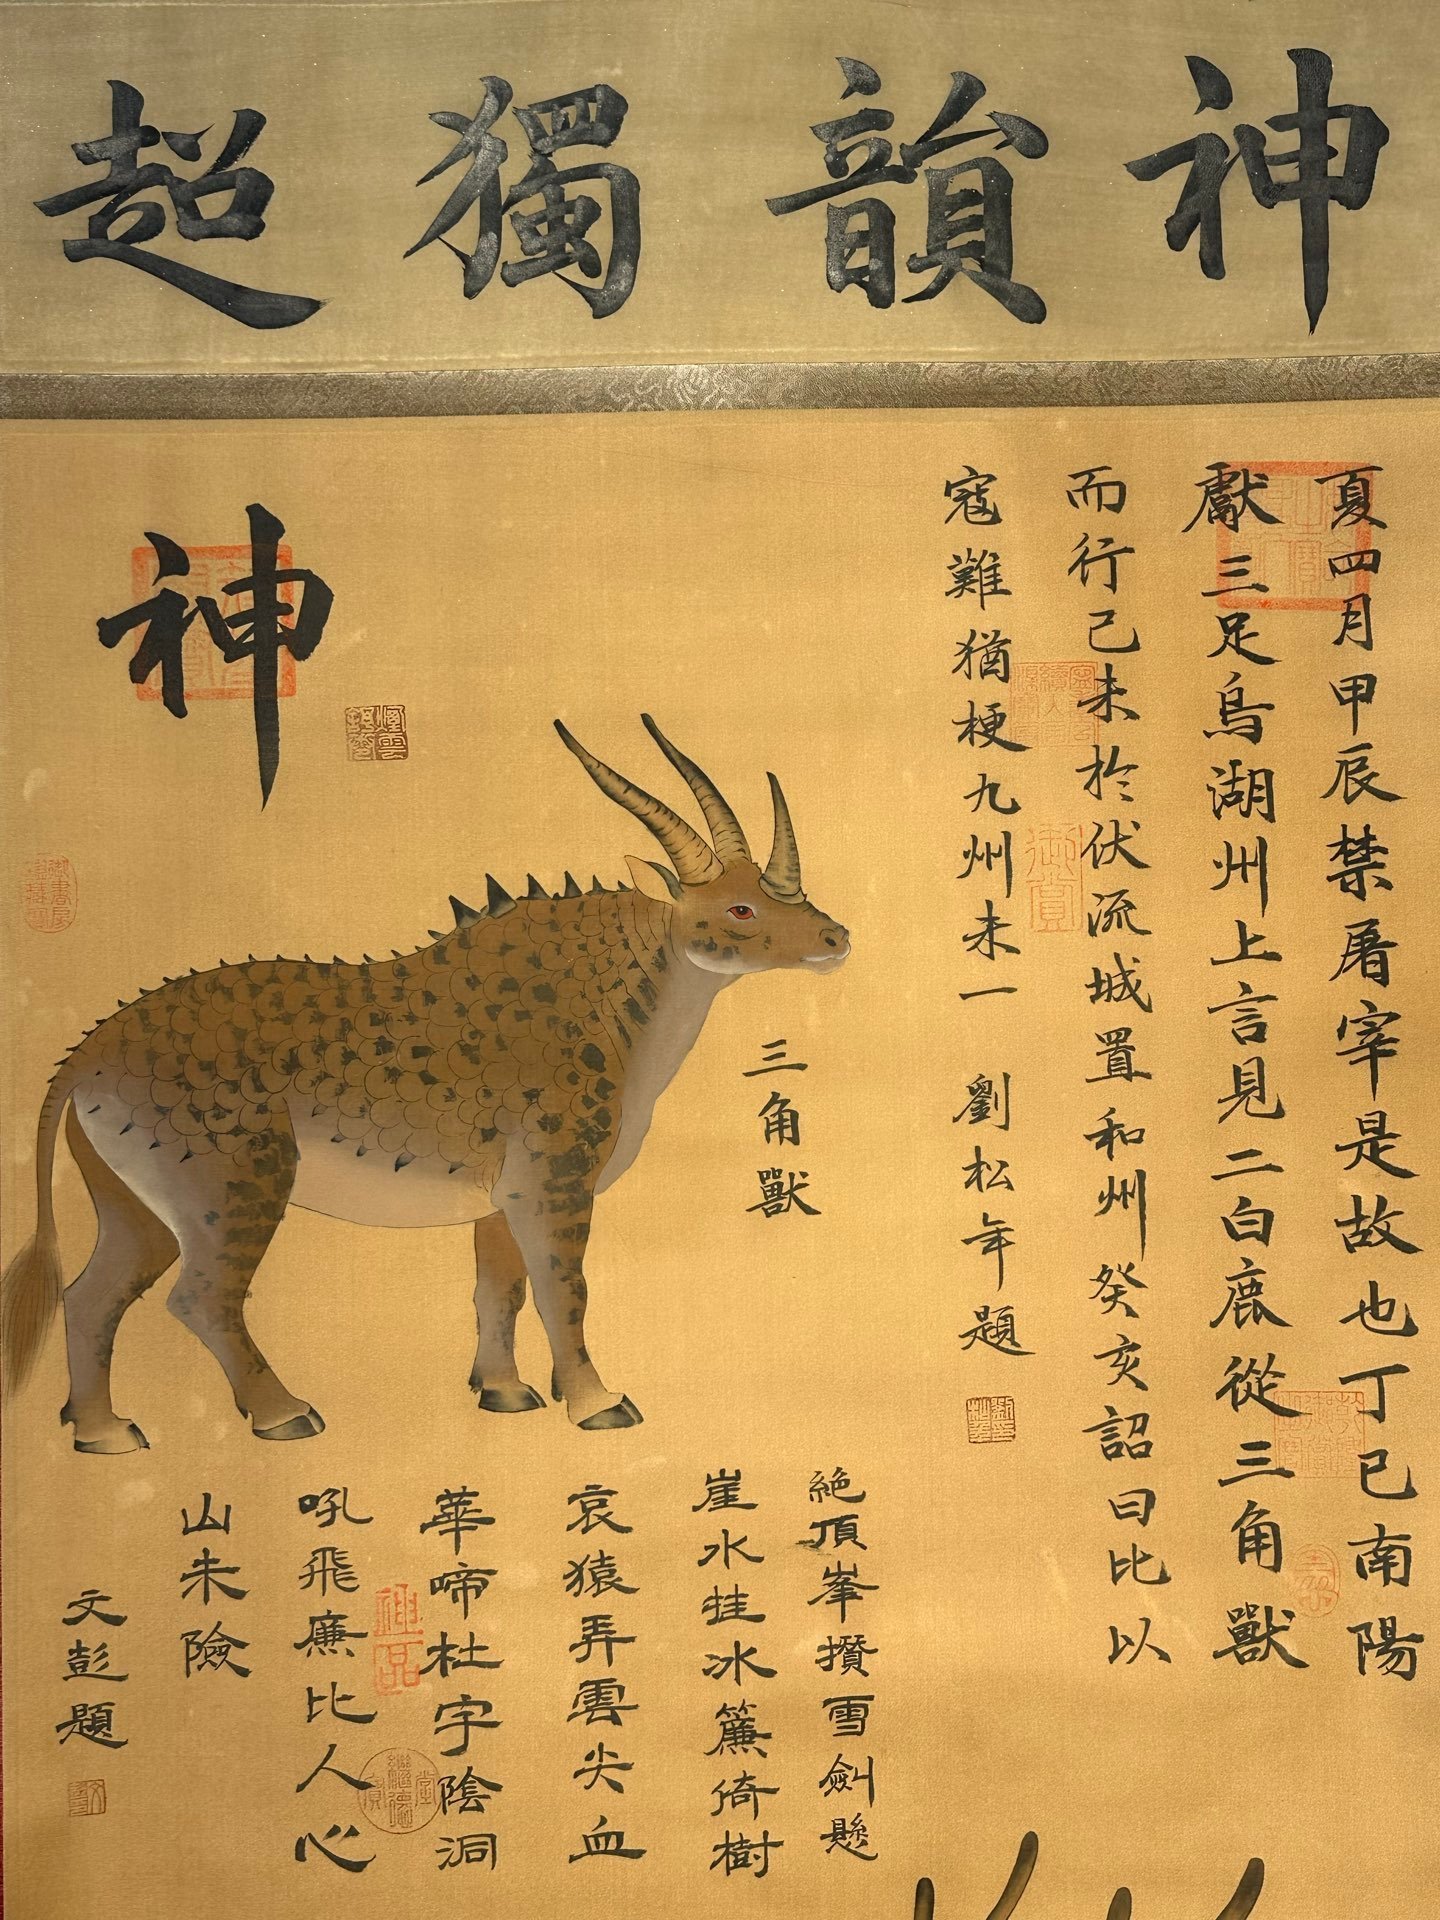 神韻獨超
夏四月甲辰禁屠宰是故也丁巳南陽
獻三足烏湖州上言見二白鹿從三角獸
而行己未於伏流城置和州癸亥詔曰比以
寇難猶梗九州未一 劉松年題
三角獸
神
御賞
神品
絶頂峯攢雪劍懸
崖水挂冰簾倚樹
哀猿弄雲尖血
華啼杜宇陰洞
吼飛廉比人心
山未險
文彭題